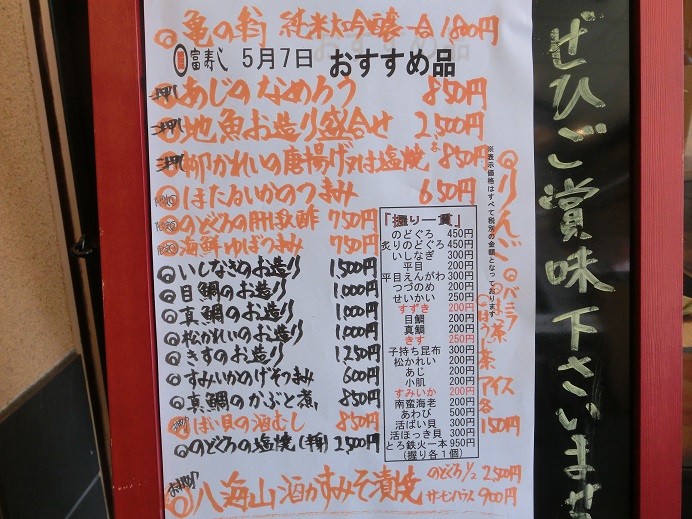 亀の翁 純米大吟醸 一合 1800円
富寿し 5月7日 おすすめ品
押 あじのなめろう 850円
押 地魚お造り盛合せ 2,500円
押 柳かれいの唐揚げ又は塩焼 各850円
ほたるいかのつまみ 650円
のどぐろの肝ポン酢 750円
海鮮ゆばつまみ 750円
いしなぎのお造り 1,500円
目鯛のお造り 1,000円
真鯛のお造り 1,000円
松かれいのお造り 1,000円
きすのお造り 1,250円
すみいかのげそつまみ 600円
真鯛のかぶと煮 850円
ばい貝の酒むし 850円
のどぐろの塩焼(半身) 2,500円
八海山 酒かすみそ漬焼 のどぐろ1/2 2,500円
サーモンハラス 900円
「握り一貫」
のどぐろ 450円
炙りのどぐろ 450円
いしなぎ 300円
平目 200円
平目えんがわ 300円
つづのめ 200円
せいかい 250円
すずき 200円
目鯛 200円
真鯛 200円
きす 250円
子持ち昆布 300円
松かれい 200円
あじ 200円
小肌 200円
すみいか 200円
南蛮海老 200円
あわび 500円
活ばい貝 300円
活ほっき貝 300円
とろ鉄火一本 950円
(握り各1個)
※表示価格はすべて税別の金額となっております
りんご
バニラ
ほうじ茶
アイス 各150円
ぜひご賞味下さいませ